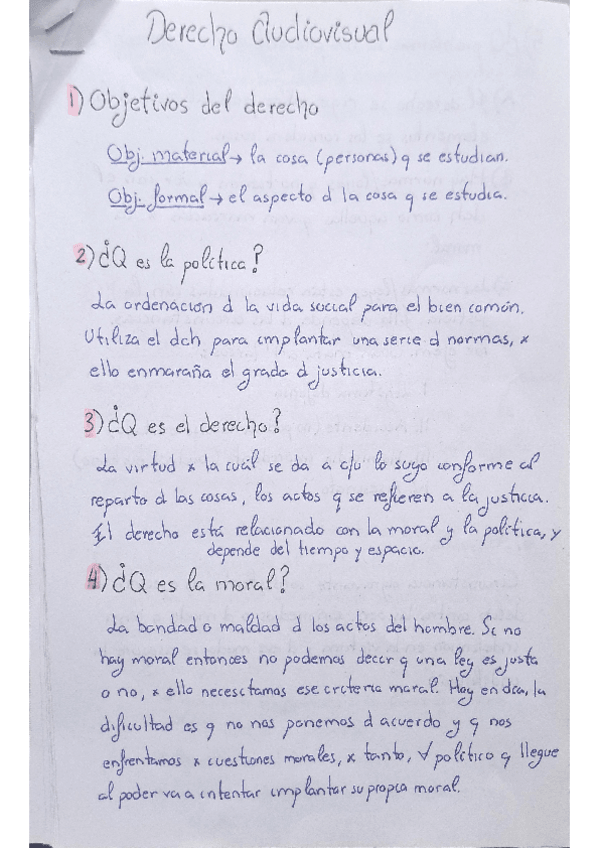 Derecho Audiovisual
1) Objetivos del derecho
Obj. material → la cosa (personas) q se estudian.
Obj. formal → el aspecto d la cosa q se estudia.
2) ¿Q es la política?
La ordenación d la vida social para el bien común.
Utiliza el dch para implantar una serie d normas, x
ello enmaraña el grado d justicia.
3) ¿Q es el derecho?
La virtud x la cuál se da a c/u lo suyo conforme al
reparto d las cosas, los actos q se refieren a la justicia.
El derecho está relacionado con la moral y la política, y
depende del tiempo y espacio.
4) ¿Q es la moral?
La bondad o maldad d los actos del hombre. Si no
hay moral entonces no podemos decir q una ley es justa
o no, x ello necesitamos ese criterio moral. Hoy en día, la
dificultad es q no nos ponemos d acuerdo y q nos
enfrentamos x cuestiones morales, x tanto, ∀ político q llegue
al poder va a intentar implantar su propia moral.